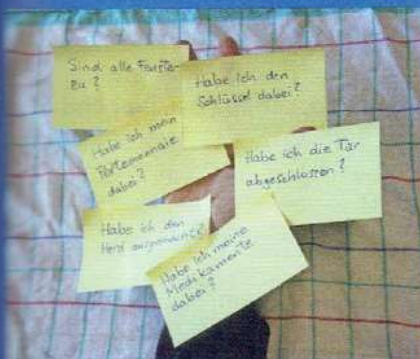 Sind alle Fenster
zu?
Habe ich den
Schlüssel dabei?
Habe ich mein
Portemonnaie
dabei?
Habe ich die Tür
abgeschlossen?
Habe ich den
Herd ausgemacht?
Habe ich meine
Medikamente
dabei?